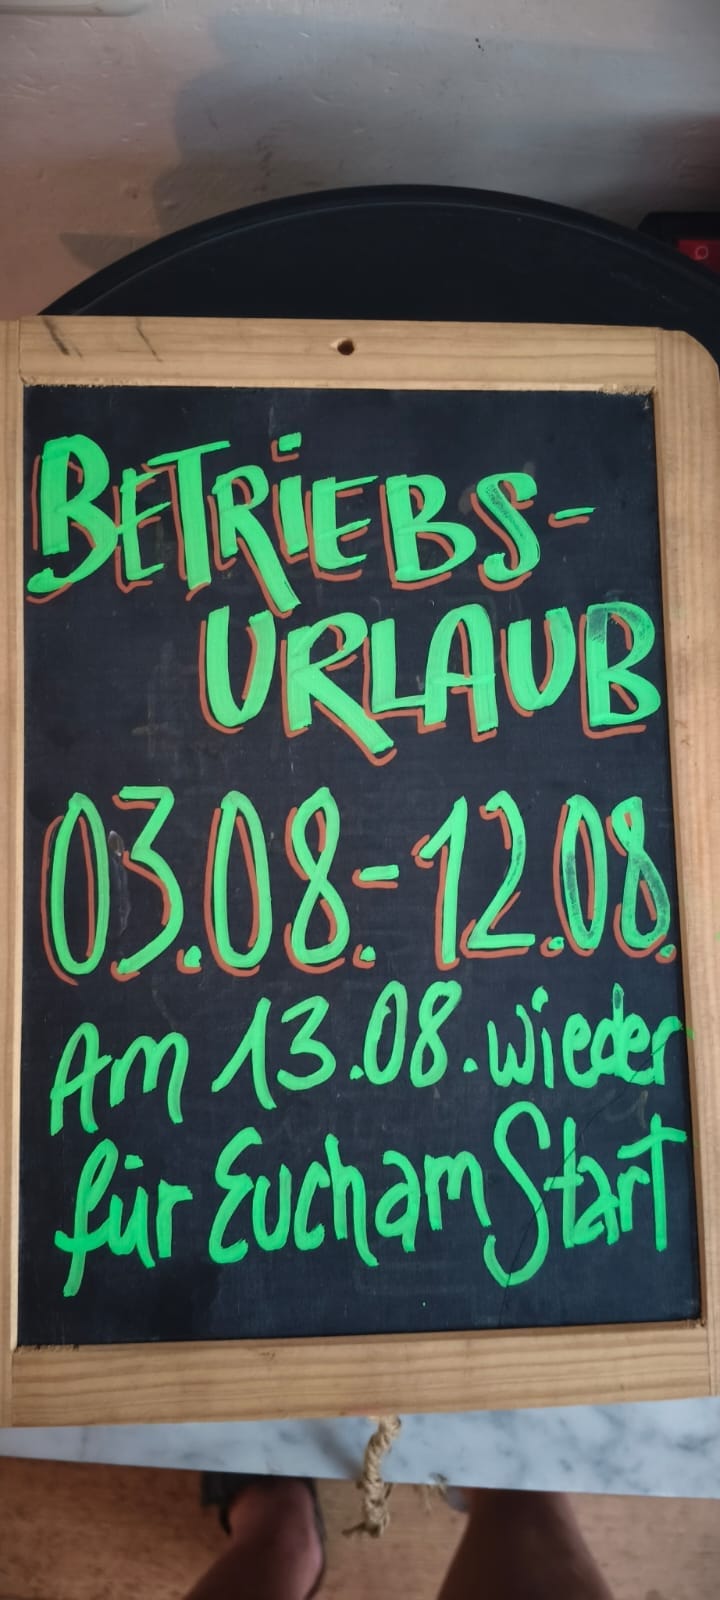 BETRiEBS-
URLAUB
03.08.-12.08.
Am 13.08. wieder
für Euch am Start